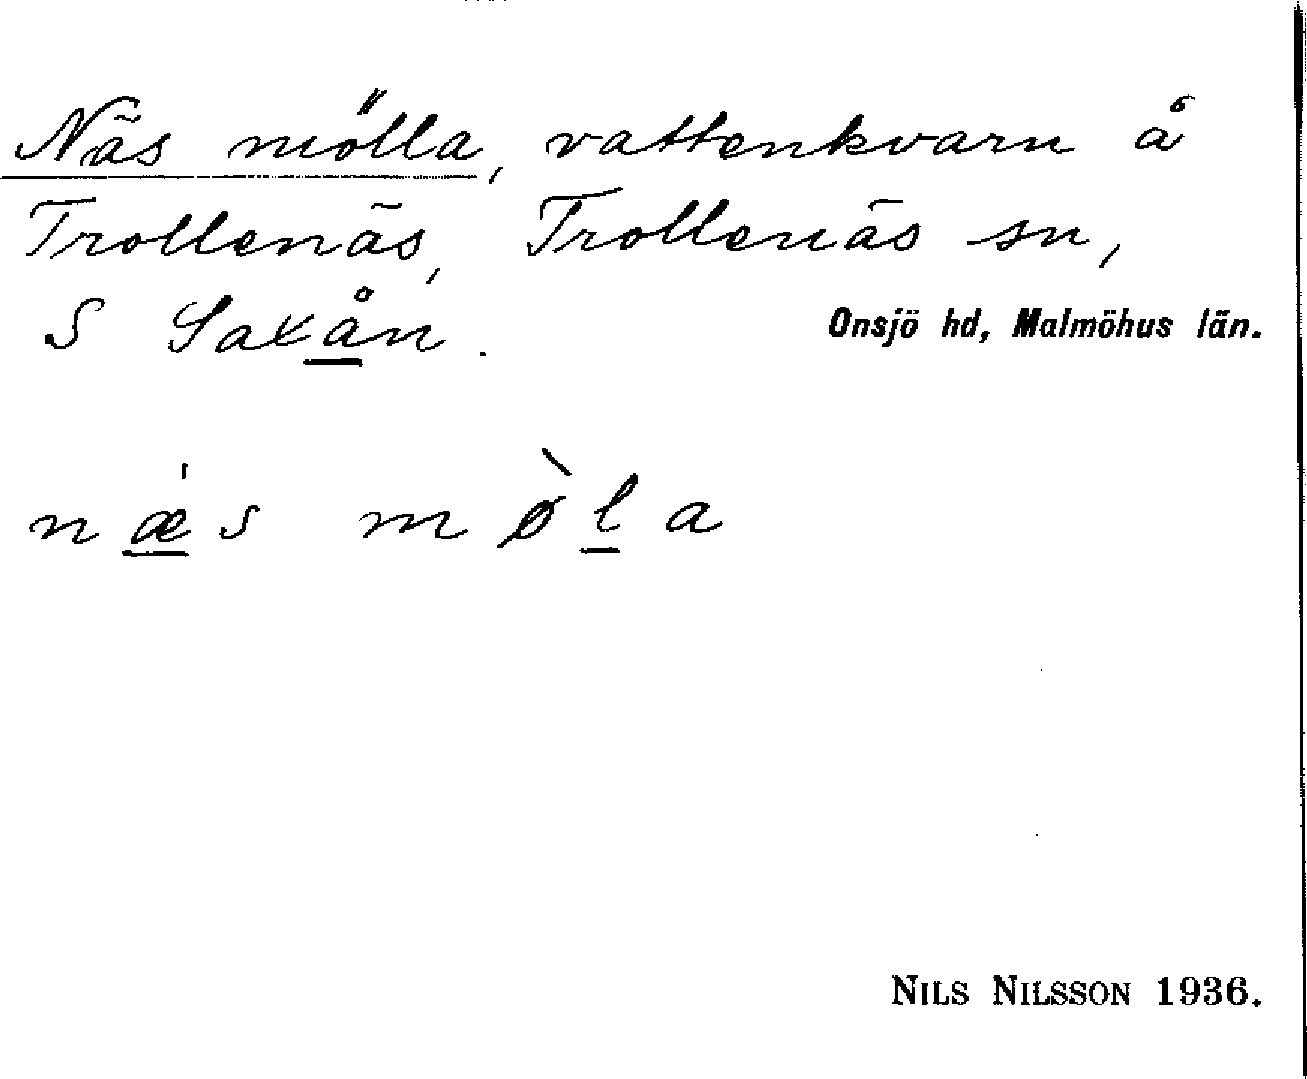 Näs mölla, vattenkvarn å
Trollenäs, Trollenäs sn,
S Saxån.
Onsjö hd, Malmöhus län.
nǽ̲s mø̀l̲a
NILS NILSSON 1936.